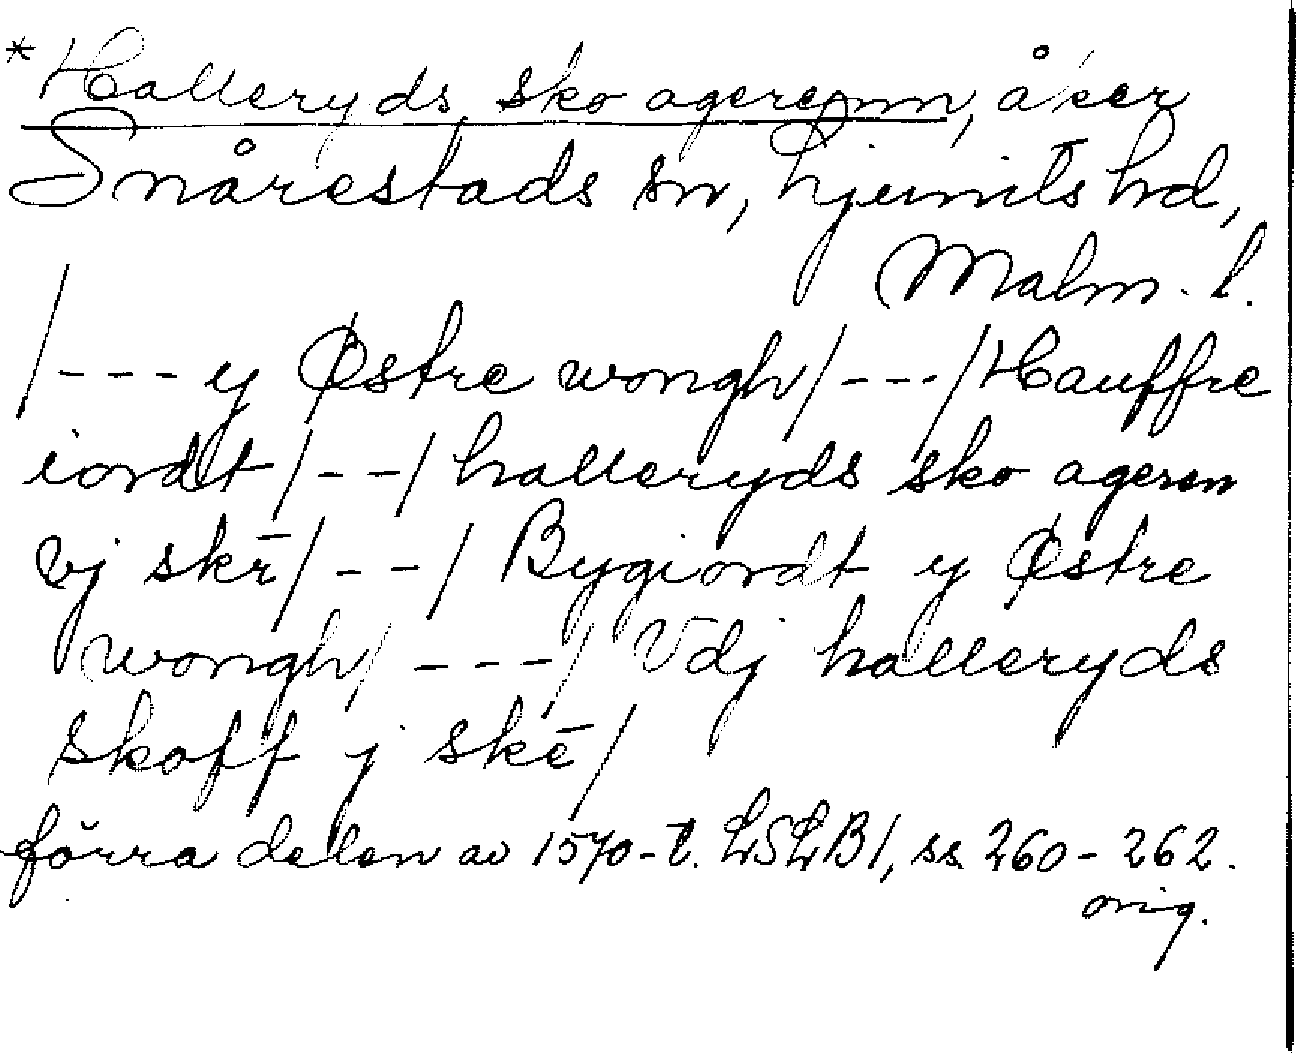 *Halleryds sko agerenn, åker
Snårestads sn, Ljunits hd,
Malm. l.
/--- y Østre wongh/---/Hauffre
iordt/--/halleryds sko ageren
vj skē/--/ Bygiordt y Østre
wongh/---/ Vdj halleryds
skoff j skē/
förra delen av 1570-t. LSLB1, ss 260-262.
orig.